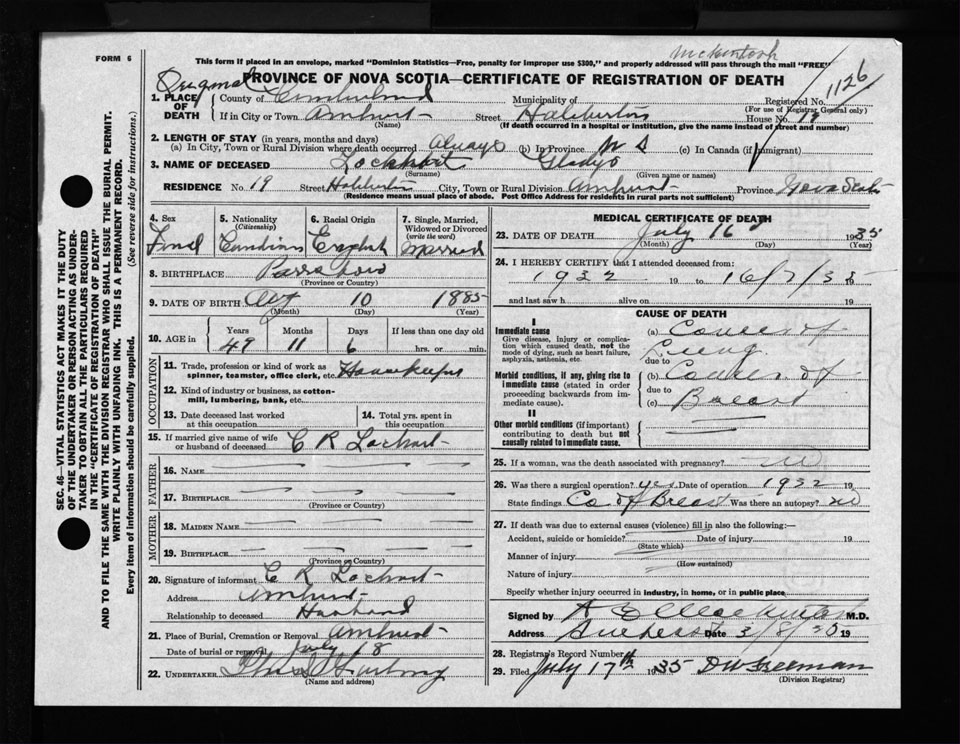 FORM 6
McKintosh
This form if placed in an envelope, marked "Dominion Statistics—Free, penalty for improper use $300," and properly addressed will pass through the mail "FREE"
PROVINCE OF NOVA SCOTIA—CERTIFICATE OF REGISTRATION OF DEATH
1126
1. PLACE OF DEATH
County of Cumberland Municipality of Registered No.
(For use of Registrar General only)
If in City or Town Amherst Street Haliburton House No. 19
(Name) (If death occurred in a hospital or institution, give the name instead of street and number)
2. LENGTH OF STAY (in years, months and days)
(a) In City, Town or Rural Division where death occurred always (b) In Province N S (c) In Canada (if immigrant)
3. NAME OF DECEASED Lockhart Gladys
(Surname) (Given name or names)
RESIDENCE No. 19 Street Haliburton City, Town or Rural Division Amherst Province Nova Scotia
(Residence means usual place of abode. Post Office Address for residents in rural parts not sufficient)
4. Sex 5. Nationality (Citizenship) 6. Racial Origin 7. Single, Married, Widowed or Divorced (write the word)
Canadian English Married
8. BIRTHPLACE
(Province or Country)
9. DATE OF BIRTH 10 1885
(Month) (Day) (Year)
10. AGE in Years Months Days If less than one day old
49 11 6 hrs. or min.
OCCUPATION
11. Trade, profession or kind of work as spinner, teamster, office clerk, etc.
12. Kind of industry or business, as cotton-mill, lumbering, bank, etc.
13. Date deceased last worked at this occupation
14. Total yrs. spent in this occupation
15. If married give name of wife or husband of deceased C R Lockhart
FATHER
16. NAME
17. BIRTHPLACE
(Province or Country)
MOTHER
18. MAIDEN NAME
19. BIRTHPLACE
(Province or Country)
20. Signature of informant C R Lockhart
Address Amherst
Relationship to deceased Husband
21. Place of Burial, Cremation or Removal Amherst
Date of burial or removal July 18
22. UNDERTAKER
(Name and address)
MEDICAL CERTIFICATE OF DEATH
23. DATE OF DEATH July 16 1935
(Month) (Day) (Year)
24. I HEREBY CERTIFY that I attended deceased from:
1932 19 to 16/7/35 19
and last saw h alive on 19
CAUSE OF DEATH
I
Immediate cause
Give disease, injury or complication which caused death, not the mode of dying, such as heart failure, asphyxia, asthenia, etc.
(a) Cancer of Lung
due to
Morbid conditions, if any, giving rise to immediate cause (stated in order proceeding backwards from immediate cause).
(b) Cancer of
due to
(c) Breast
II
Other morbid conditions (if important) contributing to death but not causally related to immediate cause.
25. If a woman, was the death associated with pregnancy? no
26. Was there a surgical operation? yes Date of operation 1932 19
State findings Ca of Breast Was there an autopsy? no
27. If death was due to external causes (violence) fill in also the following:—
Accident, suicide or homicide? Date of injury 19
(State which)
Manner of injury
(How sustained)
Nature of injury
Specify whether injury occurred in industry, in home, or in public place
Signed by M.D.
Address Amherst Date 19
28. Registrar's Record Number
29. Filed July 17th 1935 D W Freeman
(Division Registrar)
SEC. 46—VITAL STATISTICS ACT MAKES IT THE DUTY
OF THE UNDERTAKER OR PERSON ACTING AS UNDER-
TAKER TO OBTAIN ALL THE PARTICULARS REQUIRED
IN THE "CERTIFICATE OF REGISTRATION OF DEATH"
AND TO FILE THE SAME WITH THE DIVISION REGISTRAR WHO SHALL ISSUE THE BURIAL PERMIT.
WRITE PLAINLY WITH UNFADING INK. THIS IS A PERMANENT RECORD.
Every item of information should be carefully supplied. (See reverse side for instructions.)